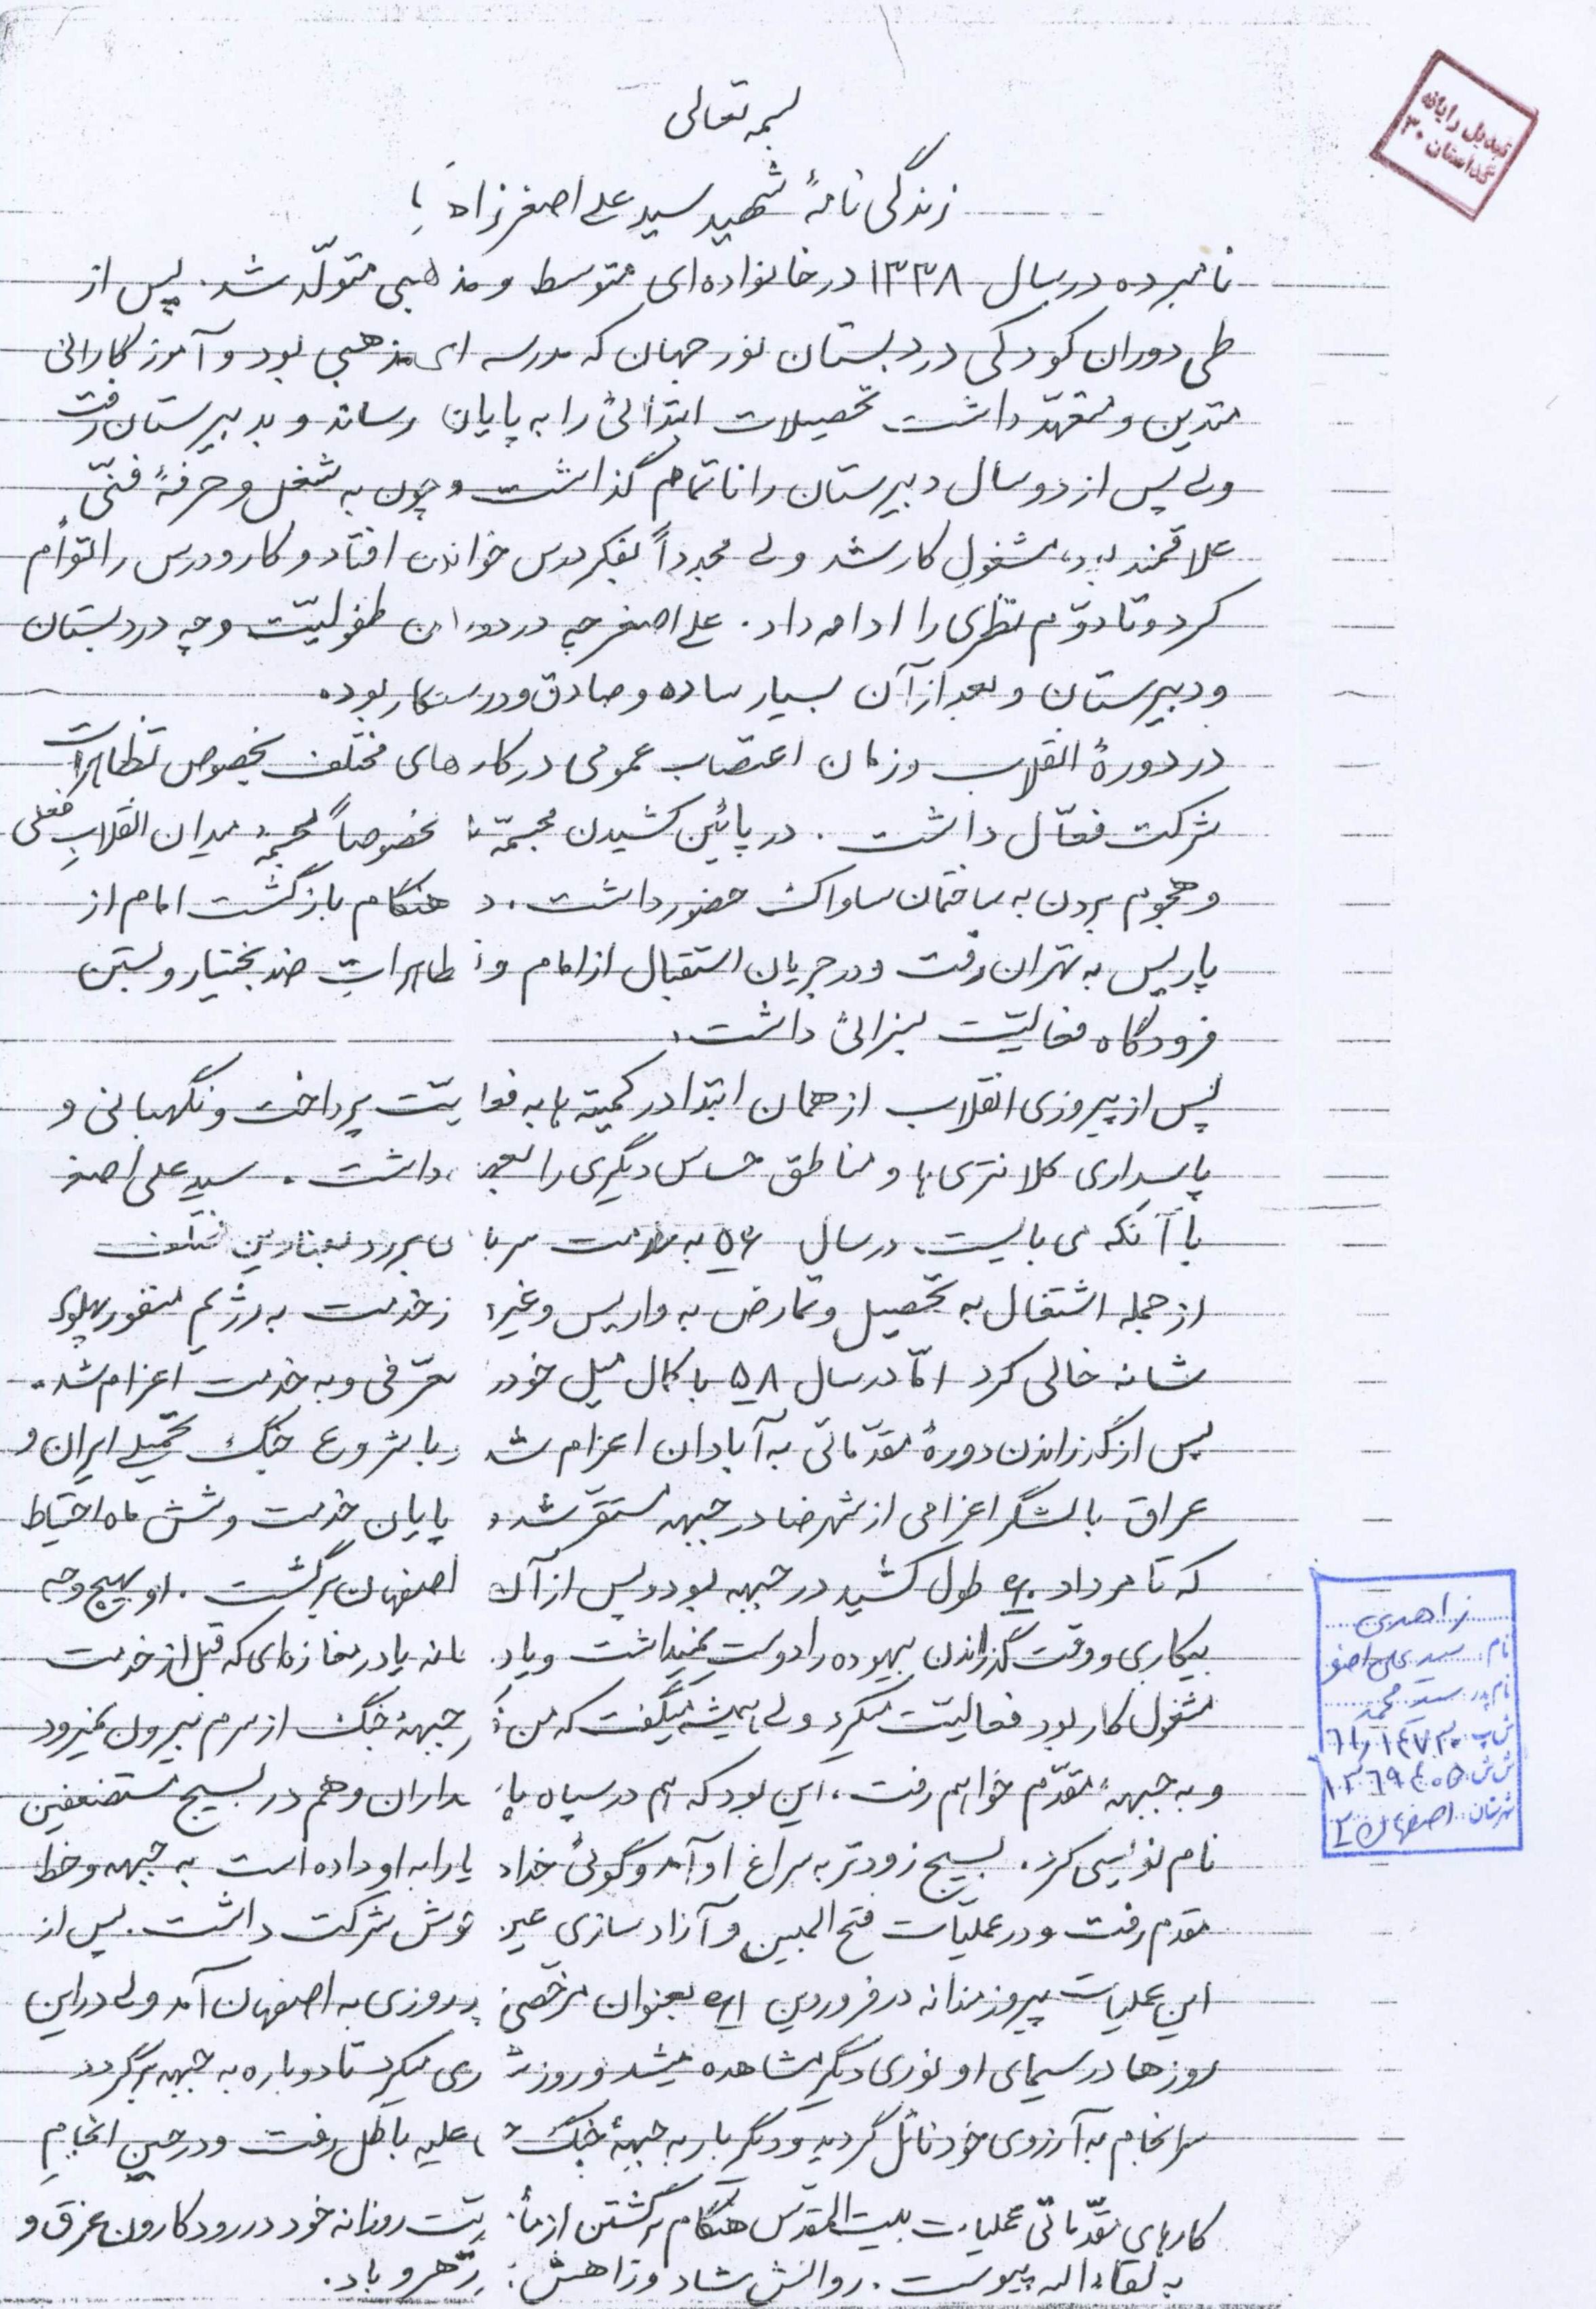 بسمه تعالی
زندگی نامهٔ شهید سید علی اصغر زاه
نامبرده در سال ۱۳۳۸ در خانواده‌ای متوسط و مذهبی متولّد شد. پس از
طی دوران کودکی در دبستان نور جهان که مدرسه ای مذهبی بود و آموزگارانی
متدین و متعهّد داشت تحصیلات ابتدائی را به پایان رساند و به دبیرستان رفت
ولی پس از دو سال دبیرستان را ناتمام گذاشت و چون به شغل و حرفهٔ فنّی
علاقمند بود، مشغول کار شد ولی مجدداً بفکر درس خواندن افتاد و کار و درس را توأم
کرد و تا دوّم نظری را ادامه داد. علی اصغر چه در دوران طفولیّت و چه در دبستان
و دبیرستان و بعد از آن بسیار ساده و صادق و درستکار بود.
در دورهٔ انقلاب و زمان اعتصاب عمومی در کارهای مختلف بخصوص تظاهرات
شرکت فعّال داشت. در پائین کشیدن مجسمّه مخصوصاً مجسمه میدان انقلابِ فعلی
و هجوم بردن به ساختمان ساواک حضور داشت. د هنگام بازگشت امام از
پاریس به تهران رفت و در جریان استقبال از امام و ظاهراتِ ضد بختیار و بستن
فرودگاه فعالیّت بسزائی داشت.
پس از پیروزی انقلاب از همان ابتدا در کمیته ها به فعا یّت پرداخت و نگهبانی و
پاسداری کلانتری ها و مناطق حساس دیگری را بعه داشت. سید علی اصغ
با آنکه می بایست در سال ۵۶ به خدمت سربا ی برود بعناوین مختلف
از جمله اشتغال به تحصیل و تمارض به واریس و غیر ز خدمت به رژیم منفور پهلوی
شانه خالی کرد امّا در سال ۵۸ با کمال میل خود ر معرّفی و به خدمت اعزام شد.
پس از گذراندن دورهٔ مقدّماتی به آبادان اعزام شد و با شروع جنگ تحمیلی ایران و
عراق با لشگر اعزامی از شهرضا در جبهه مستقرّ شد و پایان خدمت و شش ماه احتیاط
که تا مرداد ۶۰ طول کشید در جبهه بود و پس از آن اصفهان برگشت. او بهیچ وجه
بیکاری و وقت گذراندن بیهوده را دوست نمیداشت و یا د نانه یا در مغازه‌ای که قبل از خدمت
مشغول کار بود فعالیّت میکرد ولی همیشه میگفت که من فک جبههٔ جنگ از سرم بیرون نمیرود
و به جبههٔ مقدّم خواهم رفت، این بود که هم در سپاه پا داران و هم در بسیج مستضعفین
نام نویسی کرد. بسیج زودتر به سراغ او آمد و گوئی خدا د یا را به او داده است به جبهه و خط
مقدم رفت و در عملیّات فتح المبین و آزاد سازی عین خوش شرکت داشت. پس از
این عملیات پیروزمندانه در فروردین ۶۱ بعنوان مرخّصی چند روزی به اصفهان آمد ولی در این
روزها در سیمای او نوری دیگر مشاهده میشد و روز ش ری میکرد تا دوباره به جبهه برگردد
سرانجام به آرزوی خود نائل گردید و دیگر بار به جبههٔ جنگ ح علیه باطل رفت و در حین انجام
کارهای مقدّماتی عملیات بیت المقدّس هنگام برگشتن از مأ ریّت روزانه خود در رود کارون غرق و
به لقاء اله پیوست. روانش شاد و راهش پررهرو باد.
تبدیل رایانه
گلستان ۳۰
زاهدی
نام: سید علی اصغر
نام پدر: سید محمد
ش پ:
ش ش:
شهرستان: اصفهان ۲